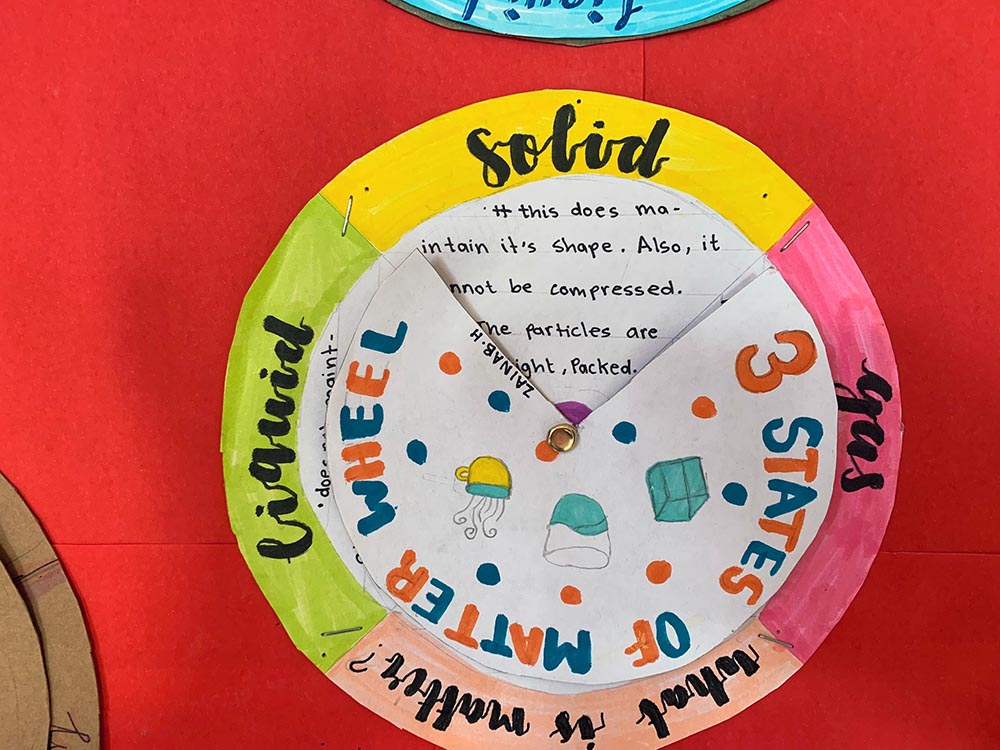 solid
# this does ma-
intain it's shape. Also, it
nnot be compressed.
The particles are
ight, Packed.
ZAINAB.H
3 STATES OF MATTER WHEEL
gas
what is matter?
liquid